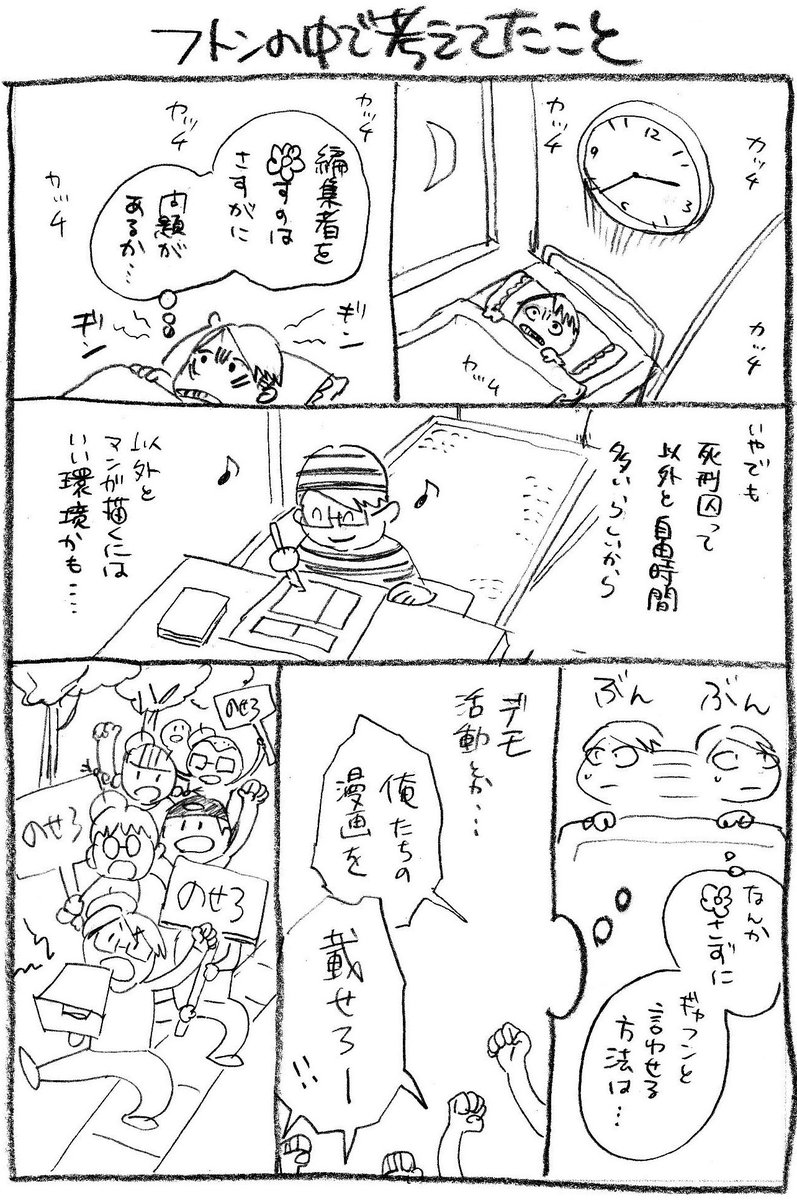 フトンの中で考えてたこと
カッチ
12
9
3
6
カッチ
カッチ
カッチ
カッチ
カッチ
カッチ
編集者を
すのは
さすがに
問題が
あるか…
ギン
ギン
いやでも
死刑囚って
以外と自由時間
多いらしいから
以外と
マンガ描くには
いい環境かも….
ぶん
ぶん
なんか
さずに
ギャフンと
言わせる
方法は…
デモ
活動とか…
俺たちの
漫画を
載せろー
!!
のせろ
のせろ
のせろ